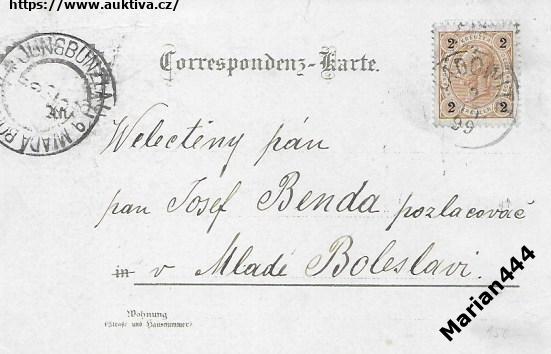 https://www.auktiva.cz/
JUNGBUNZLAU
MLADÁ BO
Correspondenz-Karte.
2 KREUZER 2
2 2
99
Welectěný pán
pan Josef Benda pozlacovač
in v Mladé Boleslavi.
Wohnung
(Straße und Hausnummer)
Marian444